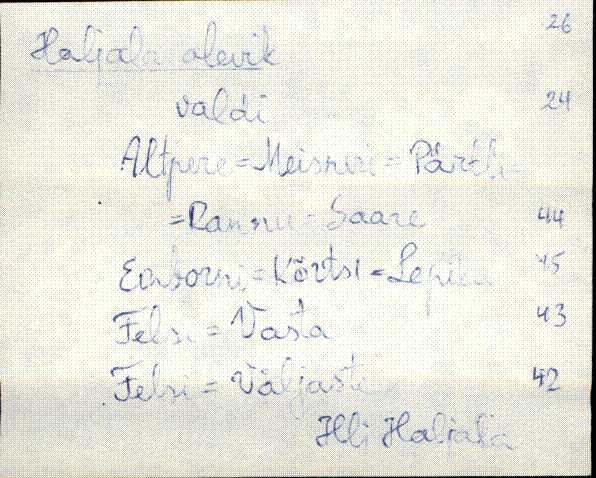 26
Haljala alevik
valdi 24
Altpere = Meisneri =
= Rannu = Saare 44
= Kõrtsi = 45
Felsi = Vasta 43
Felsi = Väljaste 42
Illi Haljala